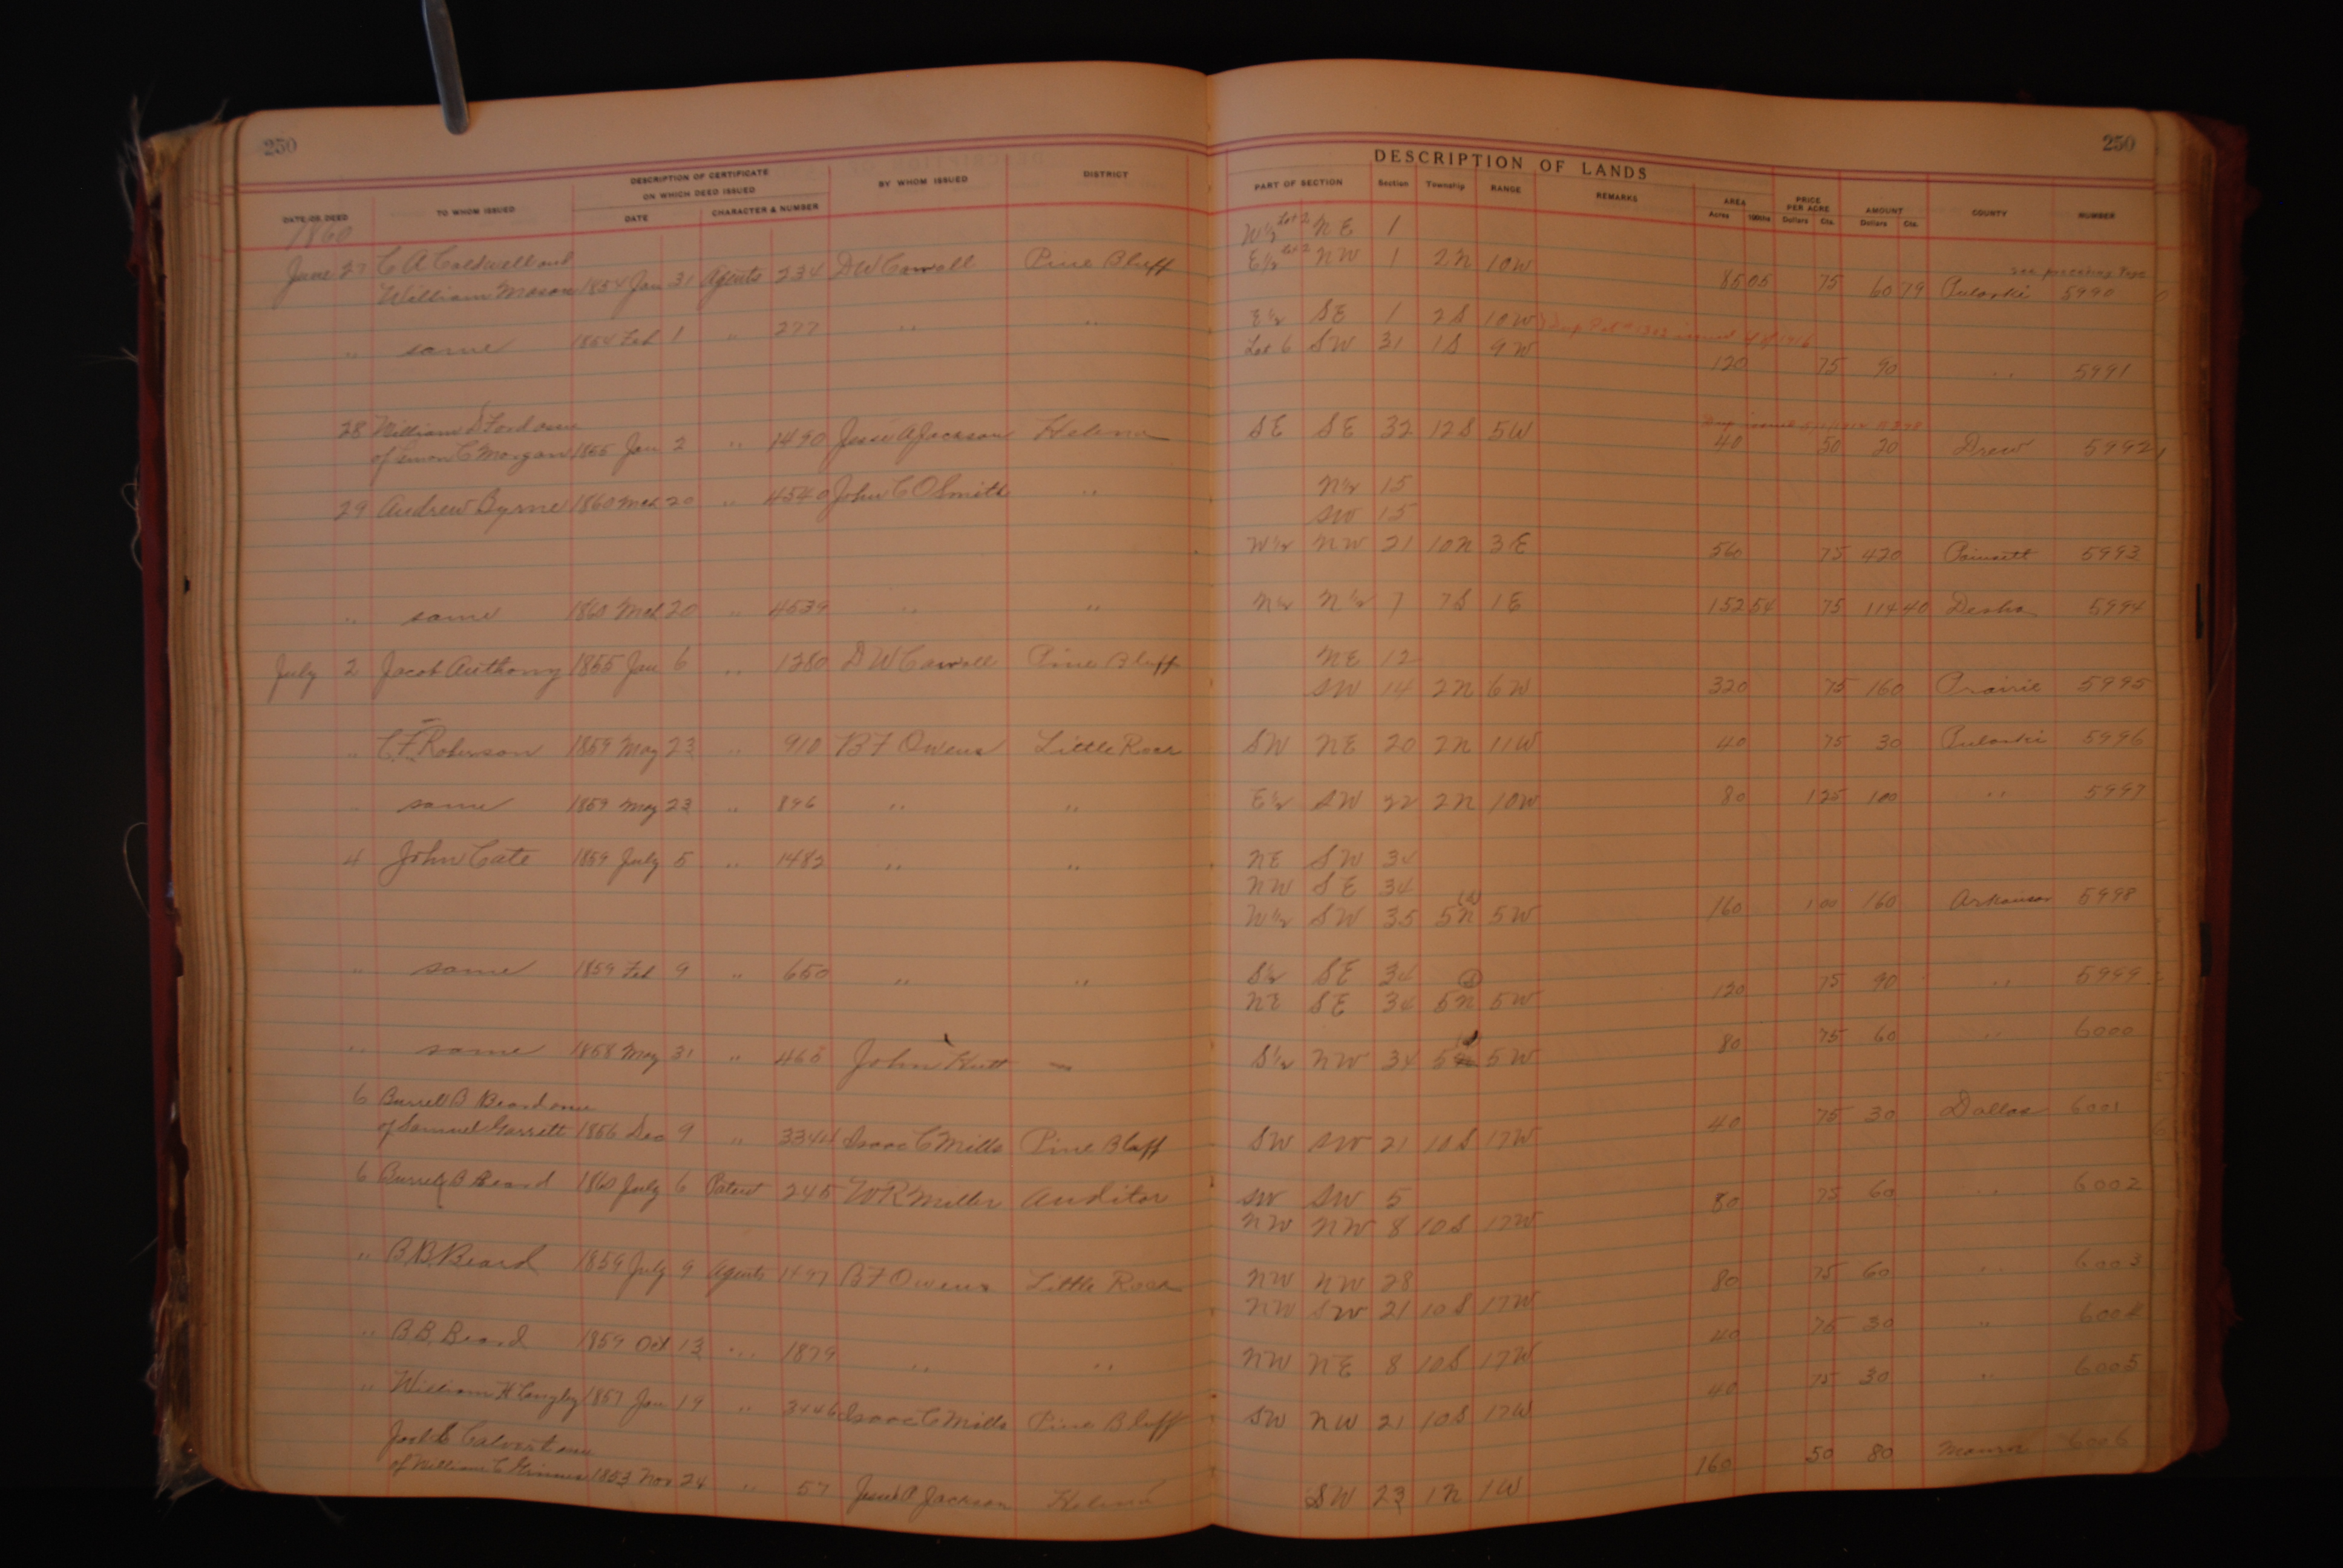 250 250
DESCRIPTION OF LANDS
DATE OF DEED TO WHOM ISSUED DESCRIPTION OF CERTIFICATE ON WHICH DEED ISSUED DATE CHARACTER & NUMBER BY WHOM ISSUED DISTRICT PART OF SECTION Section Township RANGE REMARKS AREA Acres 100ths PRICE PER ACRE Dollars Cts. AMOUNT Dollars Cts. COUNTY NUMBER
1860
W½ Lot 2 NE 1
June 27 C A Caldwell and E½ Lot 2 NW 1 2N 10W see preceding Page
William Mason 1854 Jan 31 Agents 234 D W Carroll Pine Bluff 85 05 75 60 79 Pulaski 5990
E½ SE 1 2S 10W
" same 1854 Feb 1 " 277 " " Lot 6 SW 31 1S 9W
120 75 90 " 5991
28 William S Ford assee
of Simon C Morgan 1855 Jan 2 " 1490 Jesse A Jackson Helena SE SE 32 12S 5W 40 50 20 Drew 5992
29 Andrew Byrne 1860 Mch 20 " 4540 John C O Smith " N½ 15
SW 15
W½ NW 21 10N 3E 560 75 420 Poinsett 5993
" same 1860 Mch 20 " 4539 " " N½ N½ 7 7S 1E 152 54 75 114 40 Desha 5994
July 2 Jacob Anthony 1855 Jan 6 " 1380 D W Carroll Pine Bluff NE 12
SW 14 2N 6W 320 75 160 Prairie 5995
" C. F. Roberson 1859 May 23 " 910 B F Owens Little Rock SW NE 20 2N 11W 40 75 30 Pulaski 5996
" same 1859 May 23 " 896 " " E½ SW 22 2N 10W 80 1 25 100 " 5997
4 John Cate 1859 July 5 " 1482 " " NE SW 34
NW SE 34
W½ SW 35 5N (S) 5W 160 1 00 160 Arkansas 5998
" same 1859 Feb 9 " 650 " " S½ SE 34
NE SE 34 5N (S) 5W 120 75 90 " 5999
" same 1858 May 31 " 465 John Hutt S½ NW 34 5 5W 80 75 60 " 6000
6 Burrell B Beard assee
of Samuel Garrett 1856 Dec 9 " 3344 Isaac C Mills Pine Bluff SW SW 21 10S 17W 40 75 30 Dallas 6001
6 Burrell B Beard 1860 July 6 Patent 245 W R Miller Auditor SW SW 5
NW NW 8 10S 17W 80 75 60 " 6002
" B. B. Beard 1859 July 9 Agents 1497 B F Owens Little Rock NW NW 28
NW SW 21 10S 17W 80 75 60 " 6003
" B. B. Beard 1859 Oct 13 " 1879 " " NW NE 8 10S 17W 40 75 30 " 6004
" William H Langley 1857 Jan 19 " 3446 Isaac C Mills Pine Bluff SW NW 21 10S 17W 40 75 30 " 6005
Calvert assee
of William C 1853 Nov 24 " 57 Jesse A Jackson Helena SW 23 1N 1W 160 50 80 Monroe 6006